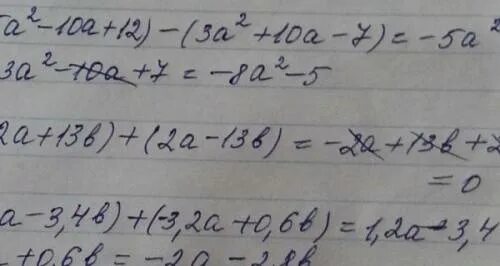 a²-10a+12)-(3a²+10a-7)=-5a²
3a²-10a+7=-8a²-5
2a+13в)+(2a-13в)=-2a+13в+2
=0
a-3,4в)+(-3,2a+0,6в)=1,2a-3,4
+0,6в=-2a-2,8в